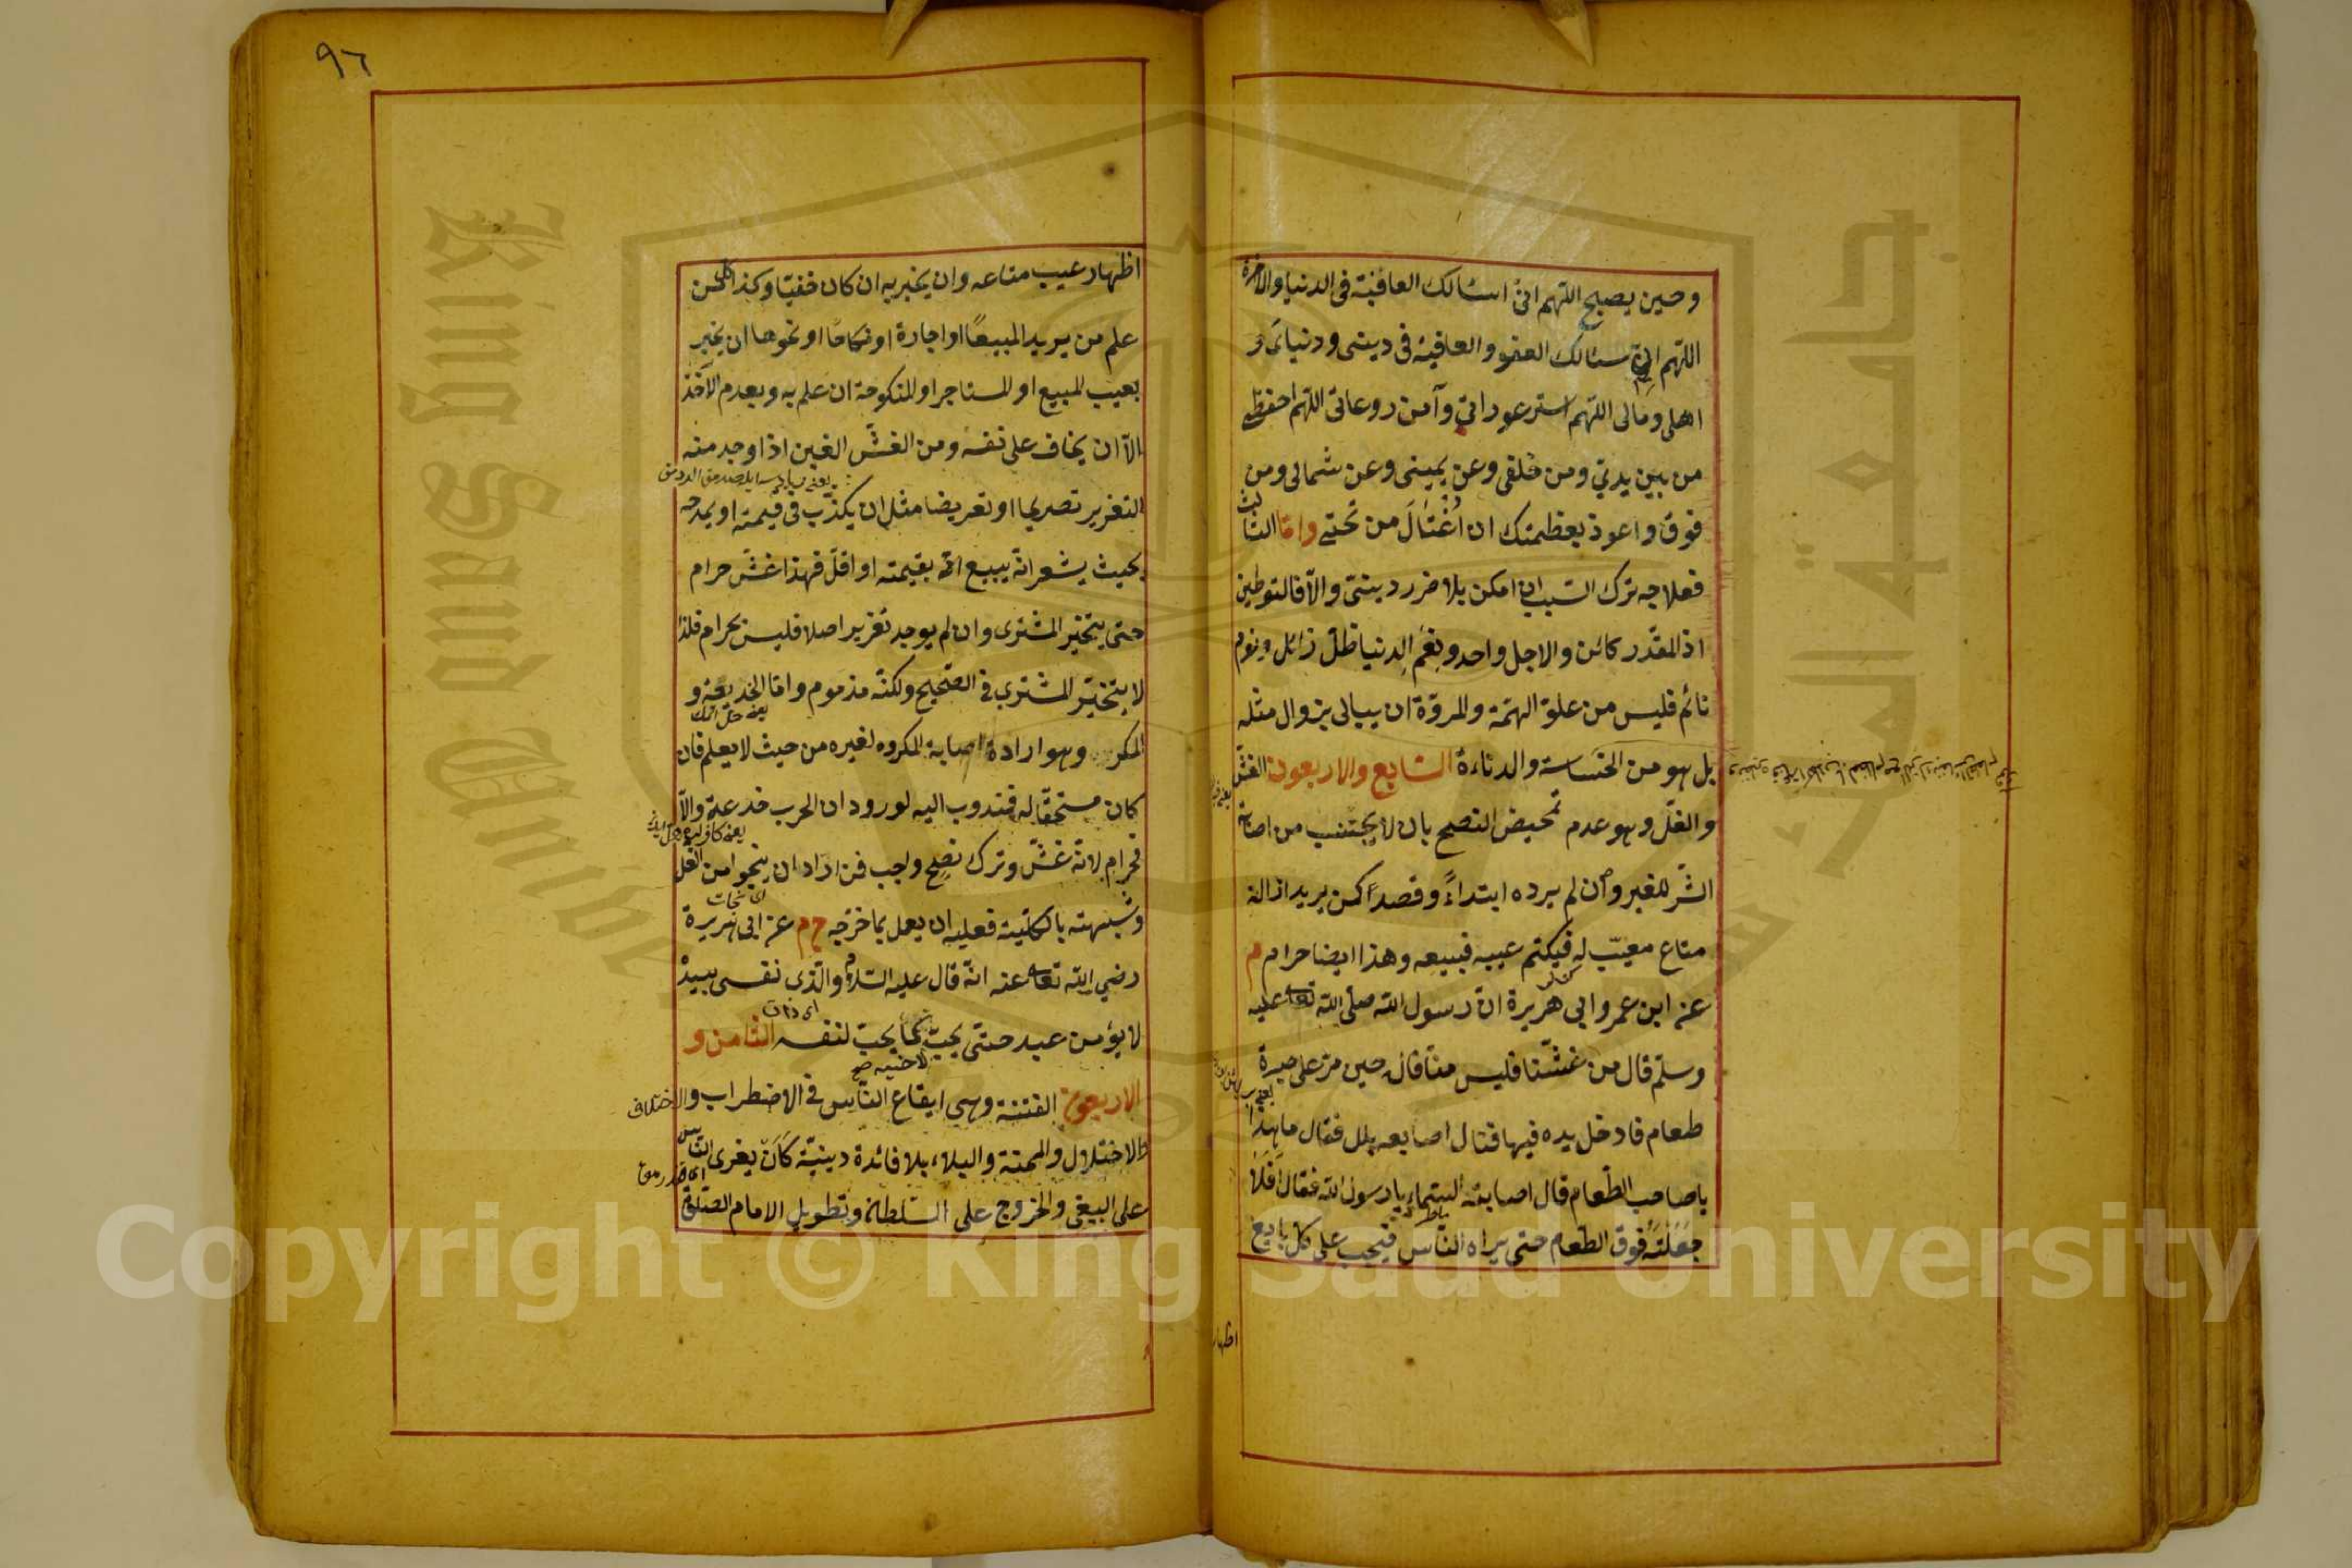 وحين يصبح اللهم انى اسئالك العافية فى الدنيا والاخرة
اللهم انى اسئالك العفو والعافية فى دينى ودنياى و
اهلى ومالى اللهم استر عوراتى وآمن روعاتى اللهم احفظنى
من بين يدى ومن خلفى وعن يمينى وعن شمالى ومن
فوقى واعوذ بعظمتك ان اُغْتَالَ من تحتى واما الثالث
فعلاجه ترك السبب ان امكن بلا ضرر دينى والّا فالتوطين
اذ المقدّر كائن والاجل واحد ونِعَم الدنيا ظلّ زائل ونوم
نائم فليس من علوّ الهمّة والمروّة ان يبالى بزوال مثله
بل هو من الخساسة والدناءة السابع والاربعون الغشّ
والغلّ وهو عدم تمحيض النصح بان لا يجتنب من اصابة
الشرّ للغير وان لم يرده ابتداءً وقصدا كمن يريد ازالة
متاع معيّب له فيكتم عيبه فيبيعه وهذا ايضا حرام م
عن ابن عمر وابى هريرة انّ رسول الله صلّى الله تعا عليه
وسلّم قال من غشّنا فليس منّا قاله حين مرّ على صبرة
طعام فادخل يده فيها فنال اصابعه بلل فقال ما هذا
يا صاحب الطّعام قال اصابته السّماء يا رسول الله فقال اَفَلَا
جَعَلْتَهُ فوق الطّعام حتى يراه النّاس فيجب على كلّ بايع
اظهار
٩٦
اظهار عيب متاعه وان يخبر به ان كان خفيّا وكذا كل من
علم من يريد المبيعًا او اجارة او نكاحًا او نحوها ان يخبر
بعيب المبيع او المستاجر او المنكوحة ان علم به وبعدم الآخذ
الّا ان يخاف على نفسه ومن الغشّ الغبن اذا وجد منه
التغرير تصريحا او تعريضا مثل ان يكذّب فى قيمته او يمدحه
بحيث يشعر انّه يبيع انّه بقيمته او اقلّ فهذا غشّ حرام
حتى يتخيّر المشترى وان لم يوجد تغرير اصلا فليس بحرام فلذا
لا يتخيّر المشترى فى الصّحيح ولكنّه مذموم وامّا الخديعة و
المكر وهو ارادة اصابة المكروه لغيره من حيث لا يعلم فان
كان مستحقّا له فمندوب اليه لورود ان الحرب خدعة والّا
فحرام لانّه غشّ وترك نصح واجب فمن اراد ان ينجو من الغل
وشبهته بالكلّيّة فعليه ان يعمل بما خرّجه خ م عن ابى هريرة
رضي الله تعا عنه انّه قال عليه السّلام والّذى نفسى بيده
لا يؤمن عبد حتّى يحبّ لاخيه ما يحبّ لنفسه الثامن و
الاربعون الفتنة وهى ايقاع النّاس فى الاضطراب والاختلاف
والاختلال والمحنة والبلاء بلا فائدة دينيّة كَاَنْ يغرى النّاس
على البغى والخروج على السّلطان وتطويل الامام الصّلوة
Copyright © King Saud University
King Saud University